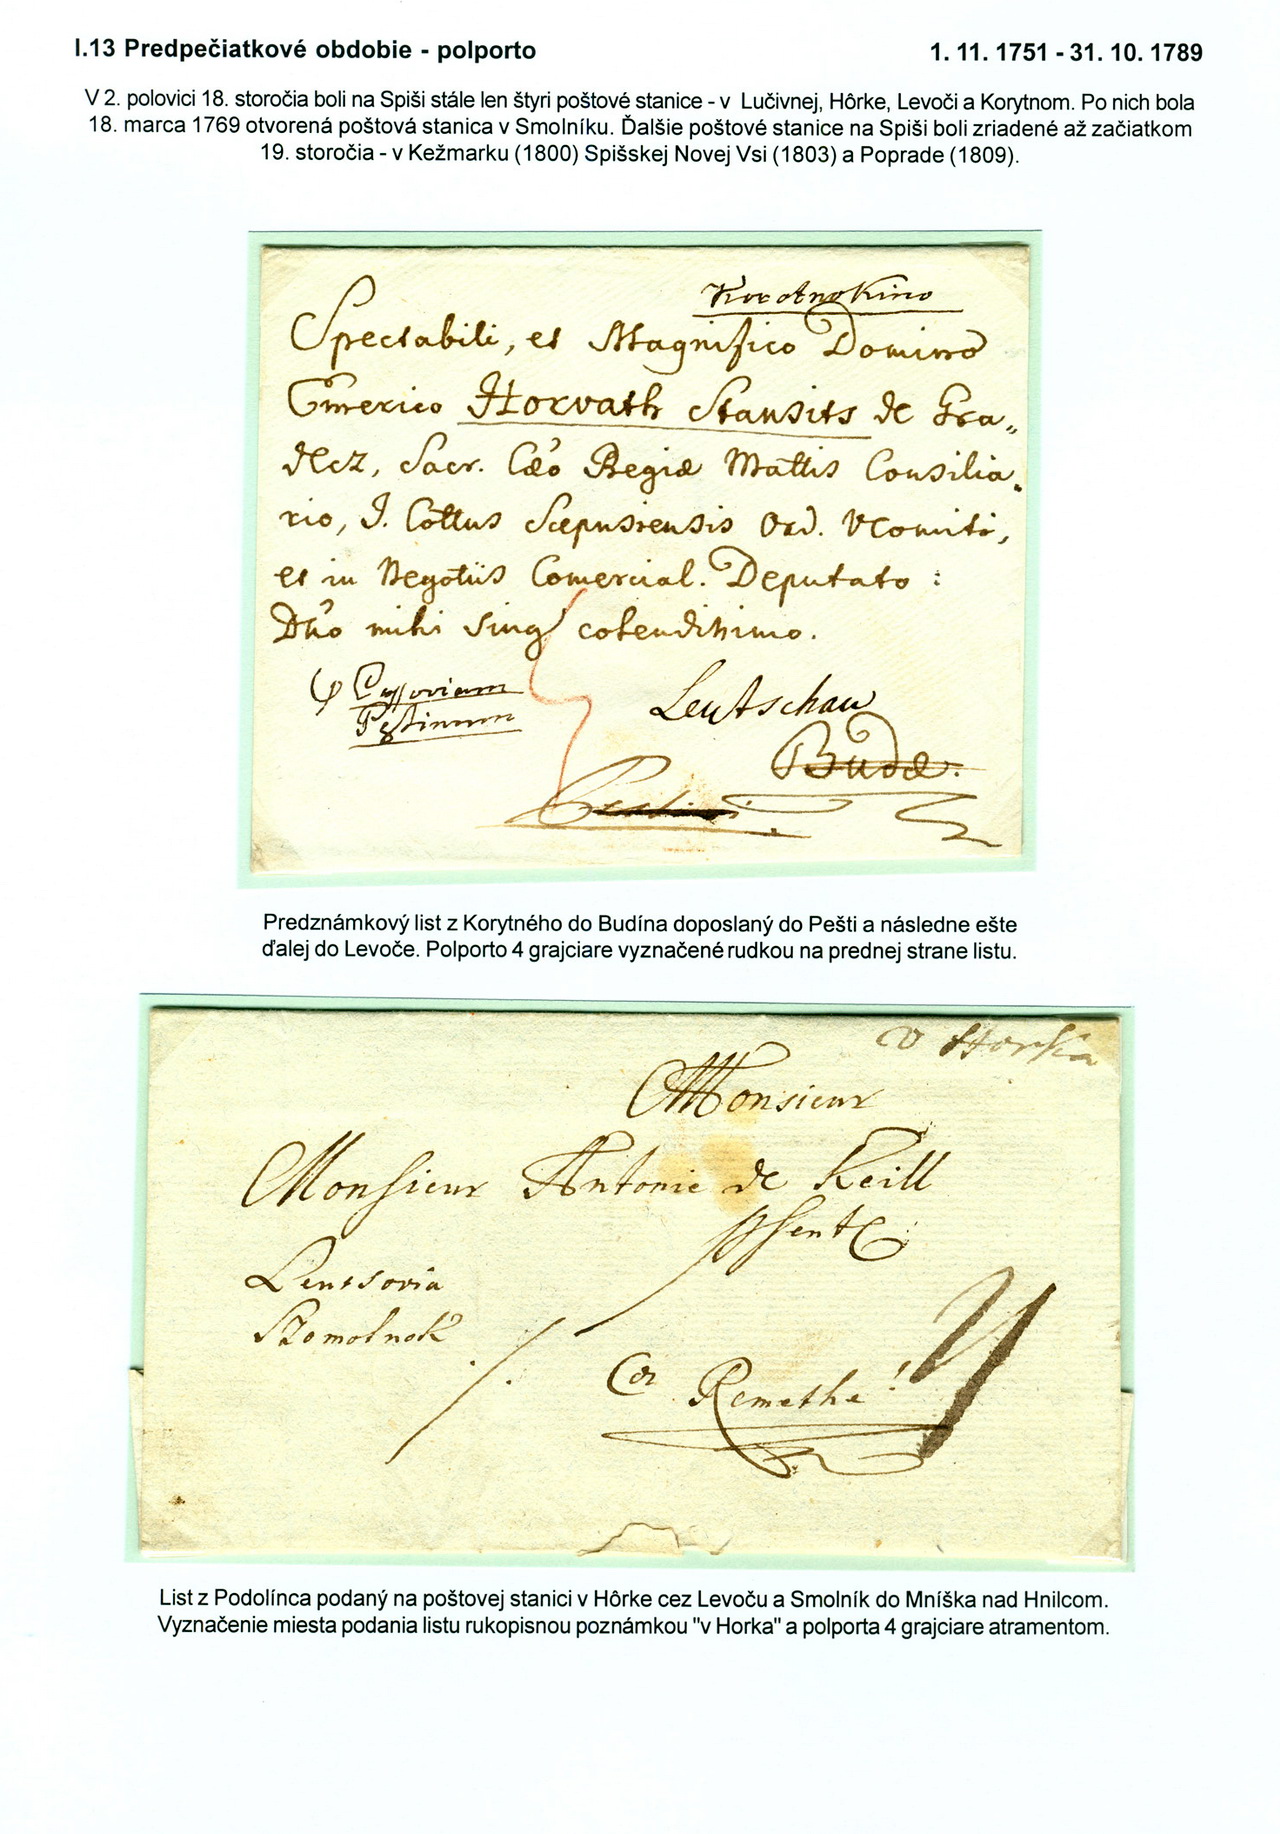 I.13 Predpečiatkové obdobie - polporto
1. 11. 1751 - 31. 10. 1789
V 2. polovici 18. storočia boli na Spiši stále len štyri poštové stanice - v Lučivnej, Hôrke, Levoči a Korytnom. Po nich bola
18. marca 1769 otvorená poštová stanica v Smolníku. Ďalšie poštové stanice na Spiši boli zriadené až začiatkom
19. storočia - v Kežmarku (1800) Spišskej Novej Vsi (1803) a Poprade (1809).
Korotnokino
Spectabili, et Magnifico Domino
Emerico Horvath Stansits de Gra„
decz, Sacr. Cæo Regiæ Mattis Consilia„
rio, I. Cottus Scepusiensis Ord. VComiti,
et in Negotiis Comercial. Deputato :
Dno mihi Sing colendissimo.
Leutschau
Pestinum
Budæ.
Predznámkový list z Korytného do Budína doposlaný do Pešti a následne ešte
ďalej do Levoče. Polporto 4 grajciare vyznačené rudkou na prednej strane listu.
v Horka
Monsieur
Monsieur Antonie de Keill
Leutsovia
Szomolnok
Remethe
List z Podolínca podaný na poštovej stanici v Hôrke cez Levoču a Smolník do Mníška nad Hnilcom.
Vyznačenie miesta podania listu rukopisnou poznámkou "v Horka" a polporta 4 grajciare atramentom.